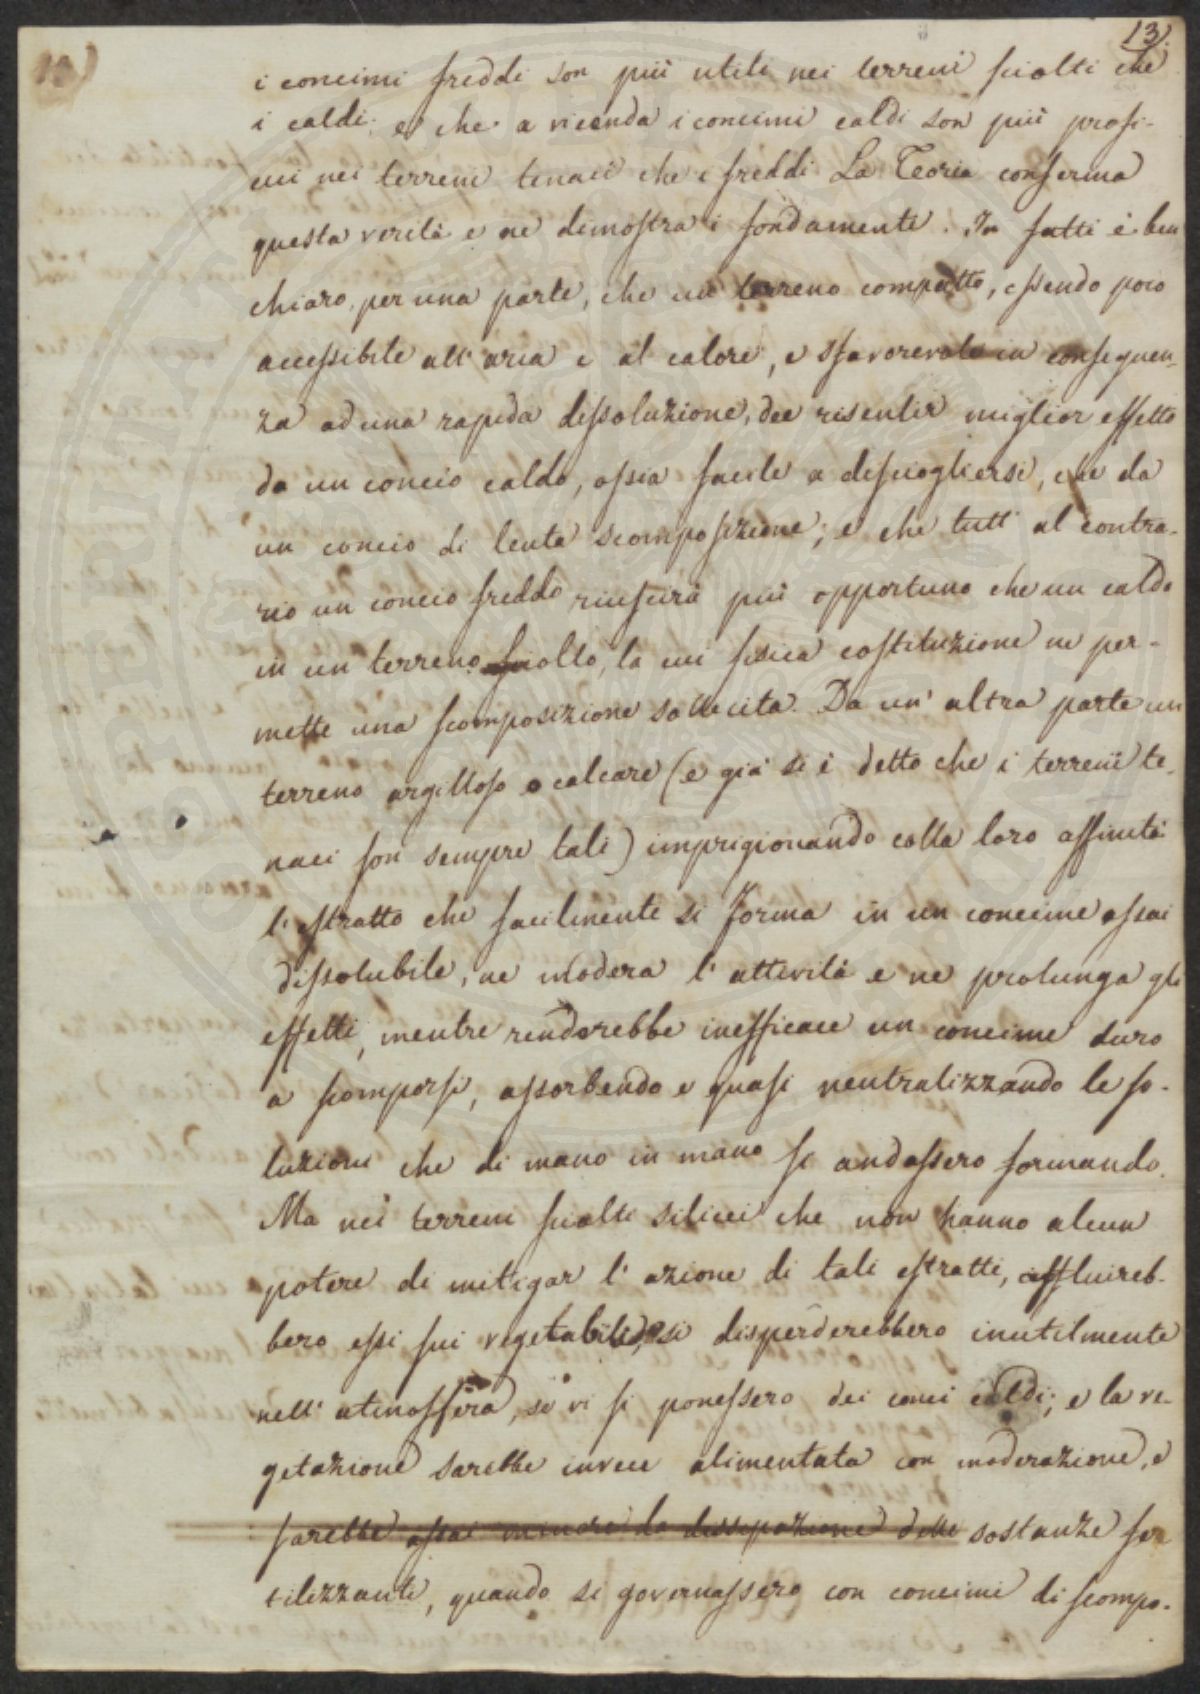 13.
i concimi freddi son più utili nei terreni sciolti che
i caldi, e che a vicenda i concimi caldi son più profi-
cui nei terreni tenaci che i freddi. La Teoria conferma
questa verità e ne dimostra i fondamenti. In fatti è ben
chiaro, per una parte, che un terreno compatto, essendo poco
accessibile all' aria e al calore, e sfavorevole in conseguen-
za ad una rapida dissoluzione, dee risentir miglior effetto
da un concio caldo, ossia facile a disciogliersi, che da
un concio di lenta scomposizione; e che tutt' al contra-
rio un concio freddo riuscirà più opportuno che un caldo
in un terreno sciolto, la cui fisica costituzione ne per-
mette una scomposizione sollecita. Da un' altra parte un
terreno argilloso o calcare (e già si è detto che i terreni te-
naci son sempre tali) imprigionando colla loro affinità
l' estratto che facilmente si forma in un concime assai
dissolubile, ne modera l' attività e ne prolunga gli
effetti, mentre renderebbe inefficace un concime duro
a scomporsi, assorbendo e quasi neutralizzando le so-
luzioni che di mano in mano si andassero formando.
Ma nei terreni sciolti silicei che non hanno alcun
potere di mitigar l' azione di tali estratti, affluireb-
bero essi sui vegetabili, e si disperderebbero inutilmente
nell' atmosfera, se vi si ponessero dei conci caldi; e la ve-
getazione sarebbe invece alimentata con moderazione, e
sarebbe assai minore la dissipazione delle sostanze fer
tilizzanti, quando si governassero con concimi di scompo-